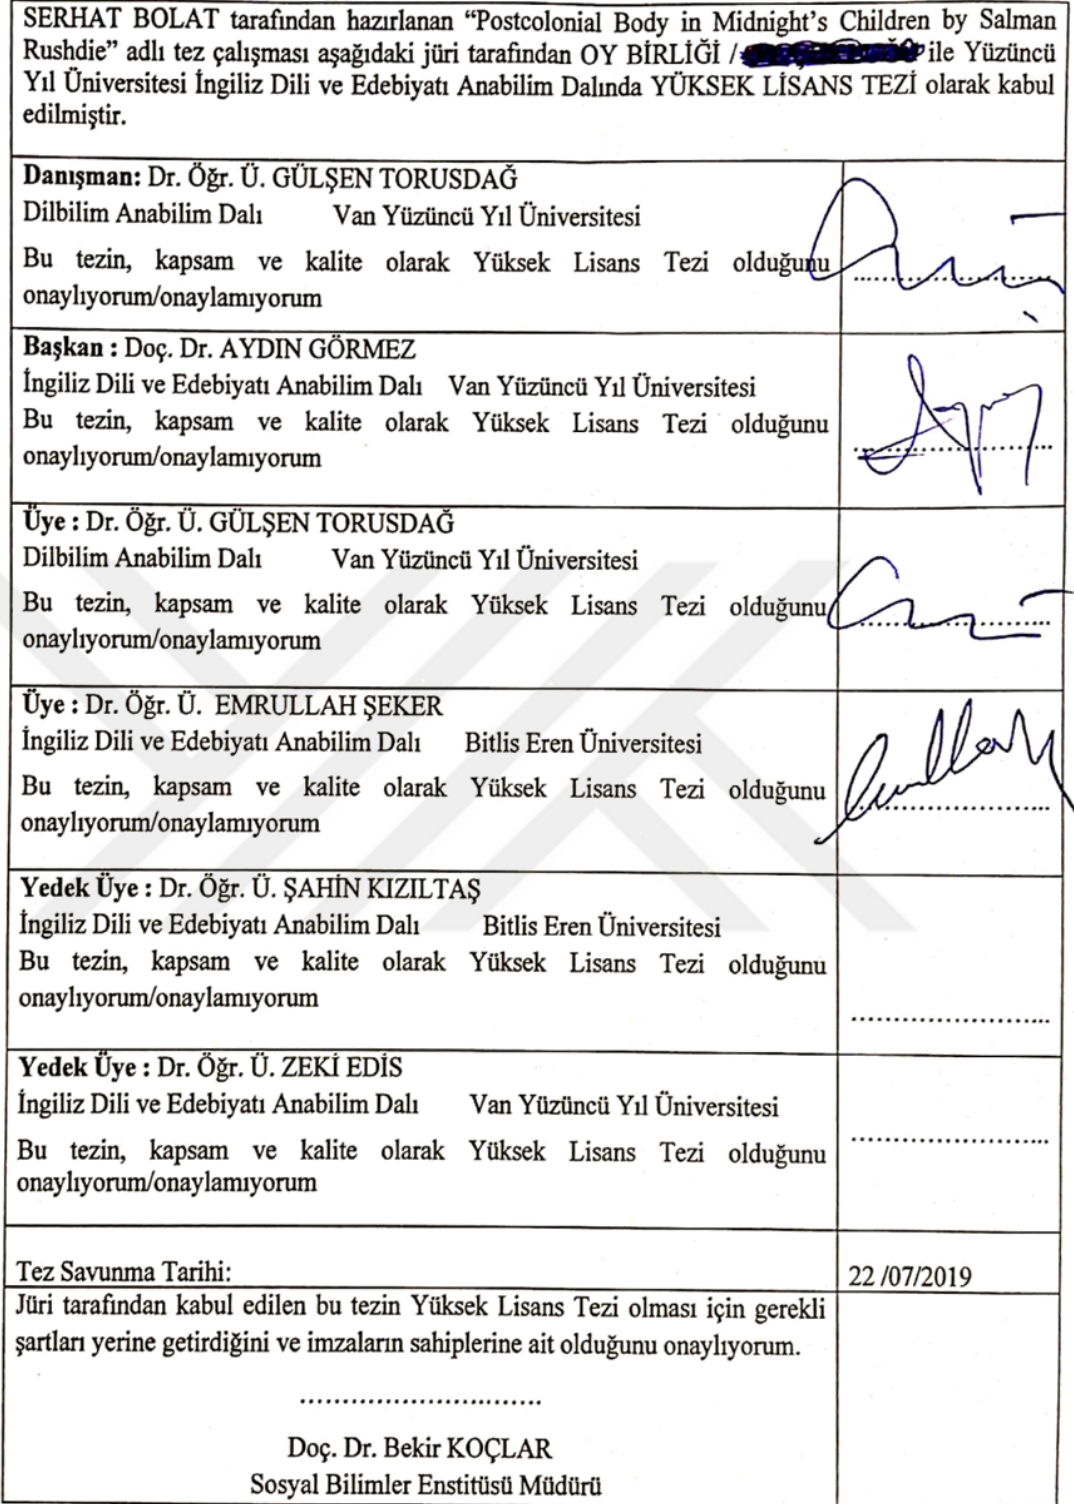 SERHAT BOLAT tarafından hazırlanan “Postcolonial Body in Midnight’s Children by Salman
Rushdie” adlı tez çalışması aşağıdaki jüri tarafından OY BİRLİĞİ / ile Yüzüncü
Yıl Üniversitesi İngiliz Dili ve Edebiyatı Anabilim Dalında YÜKSEK LİSANS TEZİ olarak kabul
edilmiştir.
Danışman: Dr. Öğr. Ü. GÜLŞEN TORUSDAĞ
Dilbilim Anabilim Dalı Van Yüzüncü Yıl Üniversitesi
Bu tezin, kapsam ve kalite olarak Yüksek Lisans Tezi olduğunu
onaylıyorum/onaylamıyorum
Başkan : Doç. Dr. AYDIN GÖRMEZ
İngiliz Dili ve Edebiyatı Anabilim Dalı Van Yüzüncü Yıl Üniversitesi
Bu tezin, kapsam ve kalite olarak Yüksek Lisans Tezi olduğunu
onaylıyorum/onaylamıyorum
Üye : Dr. Öğr. Ü. GÜLŞEN TORUSDAĞ
Dilbilim Anabilim Dalı Van Yüzüncü Yıl Üniversitesi
Bu tezin, kapsam ve kalite olarak Yüksek Lisans Tezi olduğunu
onaylıyorum/onaylamıyorum
Üye : Dr. Öğr. Ü. EMRULLAH ŞEKER
İngiliz Dili ve Edebiyatı Anabilim Dalı Bitlis Eren Üniversitesi
Bu tezin, kapsam ve kalite olarak Yüksek Lisans Tezi olduğunu
onaylıyorum/onaylamıyorum
Yedek Üye : Dr. Öğr. Ü. ŞAHİN KIZILTAŞ
İngiliz Dili ve Edebiyatı Anabilim Dalı Bitlis Eren Üniversitesi
Bu tezin, kapsam ve kalite olarak Yüksek Lisans Tezi olduğunu
onaylıyorum/onaylamıyorum
Yedek Üye : Dr. Öğr. Ü. ZEKİ EDİS
İngiliz Dili ve Edebiyatı Anabilim Dalı Van Yüzüncü Yıl Üniversitesi
Bu tezin, kapsam ve kalite olarak Yüksek Lisans Tezi olduğunu
onaylıyorum/onaylamıyorum
Tez Savunma Tarihi: 22 /07/2019
Jüri tarafından kabul edilen bu tezin Yüksek Lisans Tezi olması için gerekli
şartları yerine getirdiğini ve imzaların sahiplerine ait olduğunu onaylıyorum.
..............................
Doç. Dr. Bekir KOÇLAR
Sosyal Bilimler Enstitüsü Müdürü